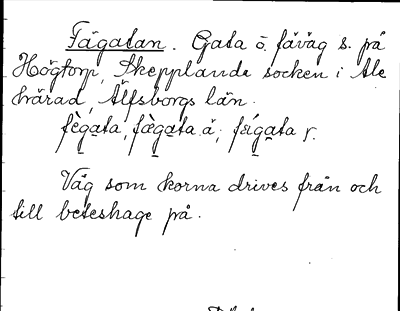 Fägatan. Gata o. fäväg s. på
Högtorp, Skepplanda socken i Ale
härad, Älfsborgs län.
fègata, fægata ä; fsígata r.
Väg som korna drives från och
till beteshage på.